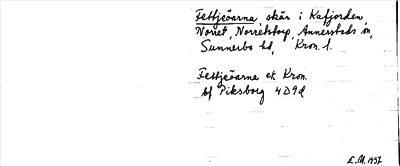 Fettjeöarna, skär i Kafjorden,
Norret, Norretstorp, Annerstads sn,
Sunnerbo hd, Kron. l.
Fettjeöarna ek Kron.
bf Piksborg 4D9d
E.M. 1937